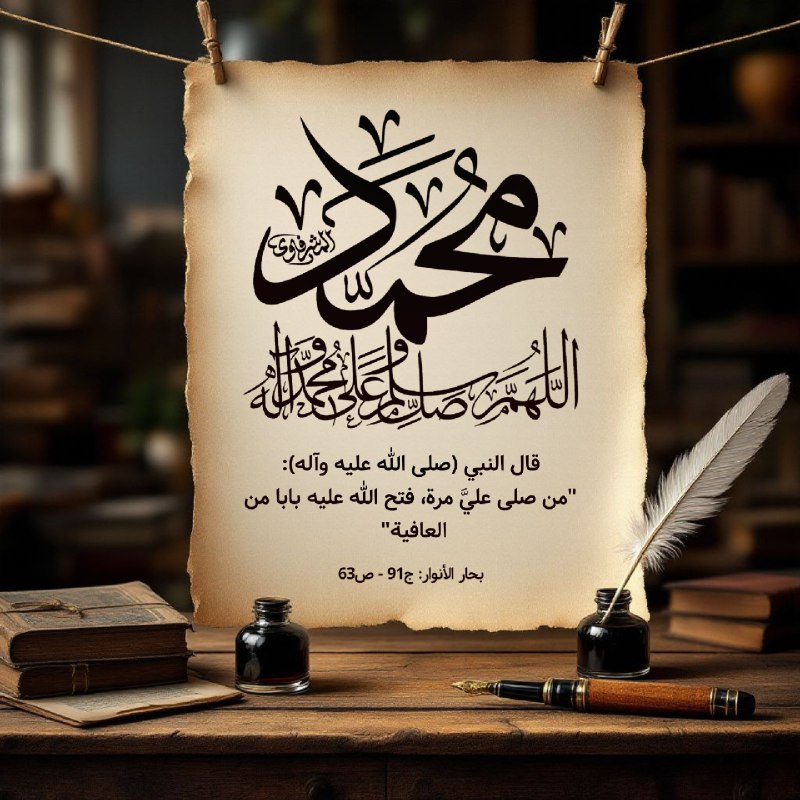 محمد
المشرفاوي
اللهم صل وسلم على محمد وآله
قال النبي (صلى الله عليه وآله):
"من صلى عليَّ مرة، فتح الله عليه بابا من
العافية"
بحار الأنوار: ج91 - ص63